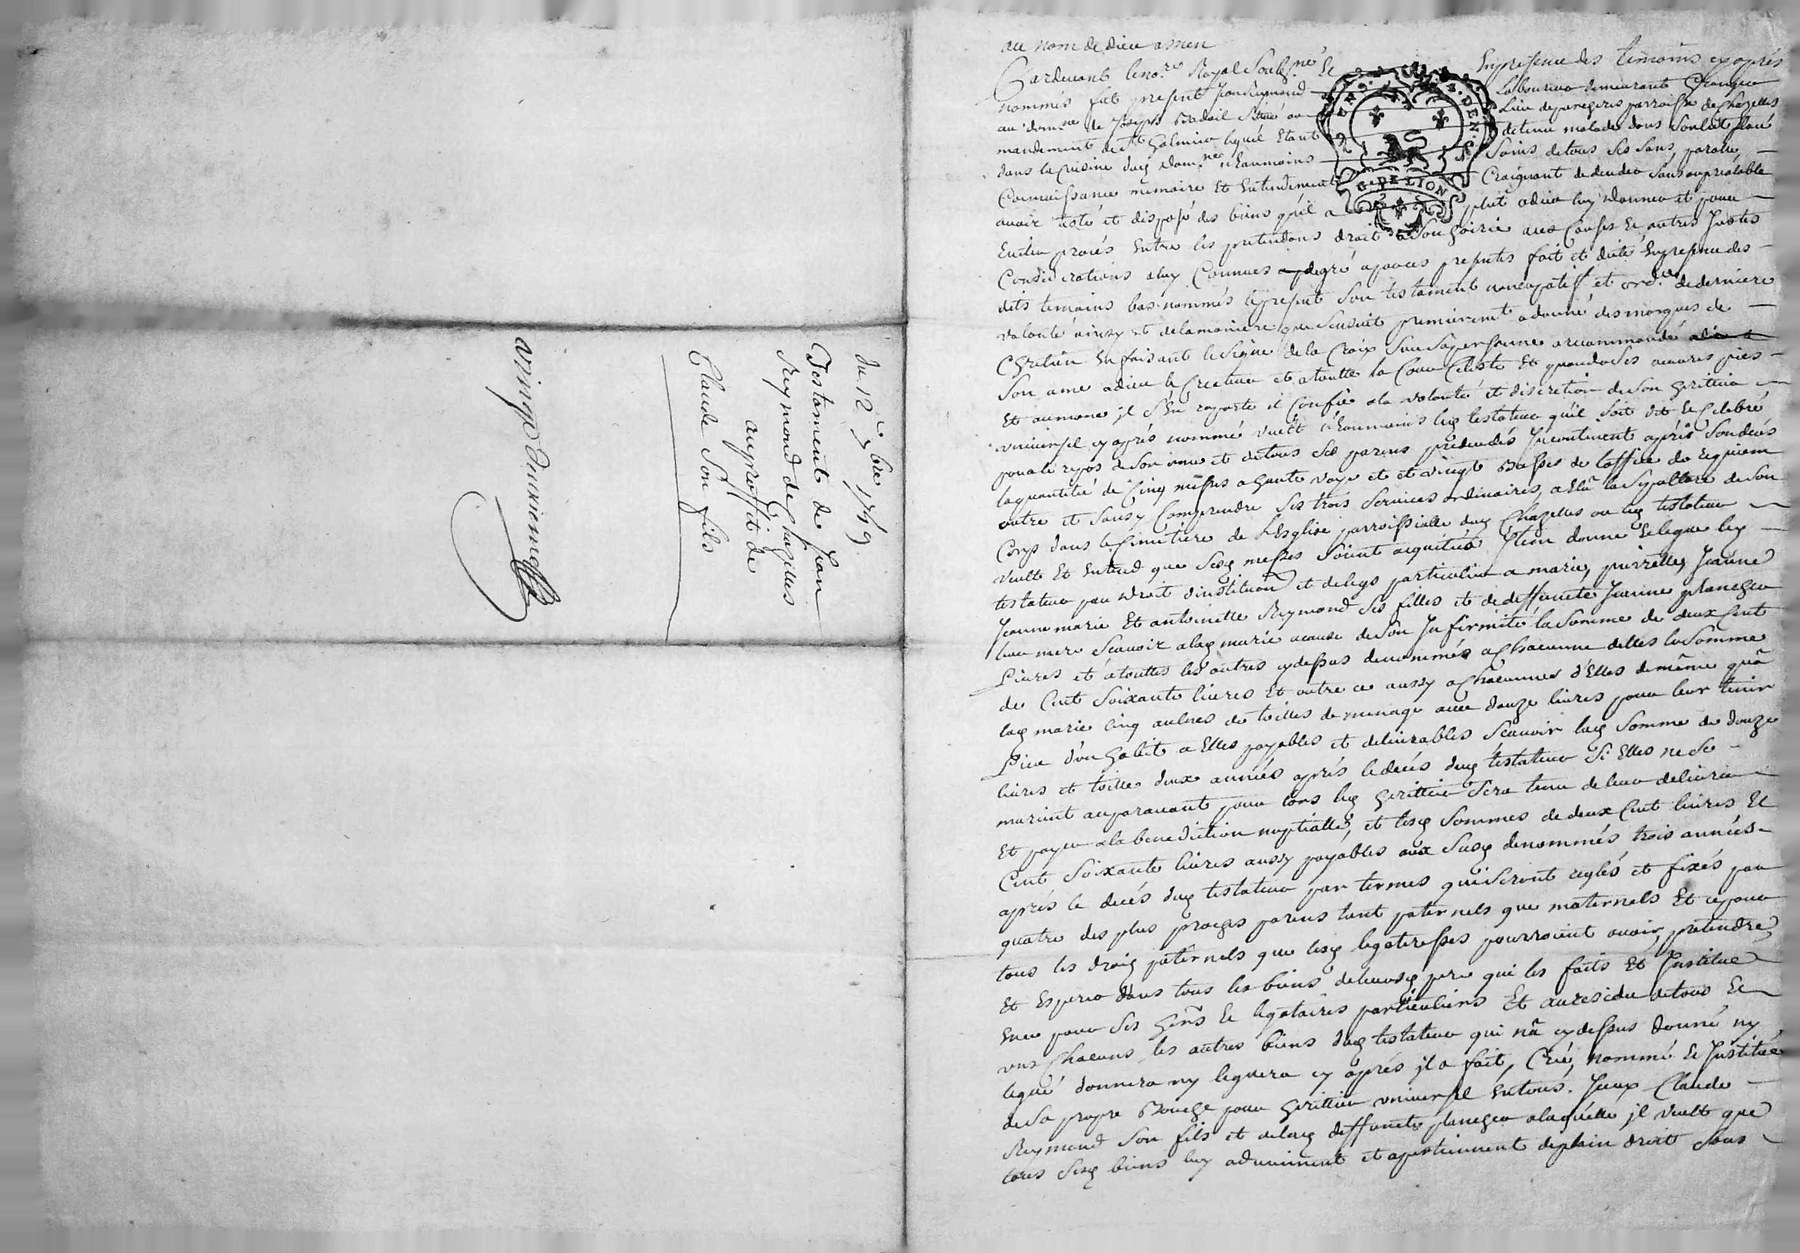 du 12e 9bre 1749
Testament de Jean
Reymond de Chazelles
au proffit de
Claude Son fils
vingt deuxieme
au nom de dieu amen
Pardevant le no.re Royal Soubs.né Et En presence des temoins cy aprés
nommés fut present Jean Reymond Laboureur demeurant Granger
au dom.ne de Joseph
mandement de St Galmier lequel Etant detenu malade dans Son lit
dans la Cuisine dud dom.ne Neanmoins Sains de tous Ses Sens, parolle,
Connaissance memoire Et Entendement Craignant de deceder Sans au prealable
avoir testé et disposé des biens qu'il a plut a dieu luy donner et pour
Eviter procés Entre les pretendans droit a Son hoirie aux Causes Et autres Justes
Considerations a luy Connues a de gré a fait et dicté En presence des
dits temoins bas nommés le present Son testament noncupatif et ord.re de derniere
volonté ainsy et de la maniere que Sensuit premierement a donné des marques de
Chretien En faisant le Signe de la Croix Sur Sa personne a recommandé
Son ame a dieu le Createur et a toutte la Cour Celeste Et quand a Ses œuvres pies
Et aumone jl S'En raporte il Confie a la volonté et discretion de Son heritier
universel cy aprés nommé veut Neanmoins led testateur qu'il Soit dit Et Celebré
pour le repos de Son ame et de tous Ses parens precedés Jncontinent aprés Son decés
la quantité de Cinq messes a haute voye et vingt Basses de l'office de requiem
outre et Sans y Comprendre Ses trois Services ordinaires, a Elû la Sepulture de Son
Corps dans le Cimetiere de l'Eglise parroissialle dud Chazelles ou led testateur
veult Et Entend que Sesd messes Soient acquittées Jtem donne Et legue led
testateur par droit d'institution et de legs particulier a marie, pierrette, Jeanne
Jeanne marie Et antoinette Reymond Ses filles et de deffuncte Jeanne planegea
leur mere Scavoir a lad marie a cause de Son Jnfirmité la Somme de deux Cent
Livres et a touttes les autres cy dessus denommés a Chacunne delles la Somme
de Cent Soixante livres Et outre ce aussy a Chacunnes d'Elles de même qu'a
lad marie Cinq aulnes de toilles de menage avec douze livres pour leur tenir
Lieu d'un habit a Elles payables et delivrables Scavoir lad Somme de douze
livres et toille deux années aprés le decés dud testateur Si Elles ne Se
marient auparavant pour lors led heritier Sera tenu de leur delivrer
Et payer a la benediction nuptialle, et lesd Sommes de deux Cent livres Et
Cent Soixante livres aussy payables aux Susd denommés trois années
aprés le decés dud testateur par termes qui Seront reglés et fixés par
quatre des plus proches parens tant paternels que maternels Et ce pour
tous les droits paternels que lesd legatresses pourroient avoir, pretendre
Et Esperer dans tous les biens de leursd pere qui les faits Et Jnstitue
Sur pour Ses heris Et legataires particuliers Et au residu de tous Et
uns Chacuns les autres biens dud testateur qui n'a cy dessus donné ny
legué donnera ny leguera cy aprés jl a fait, Créé, nommé Et Jnstitué
de Sa propre Bouche pour heritier universel En tous. Jceux Claude
Reymond Son fils et de lad deffuncte planegea alaquelle jl veult que
tous Sesd biens luy adviennent et apartiennent de plain droit Sans
G. DE LION